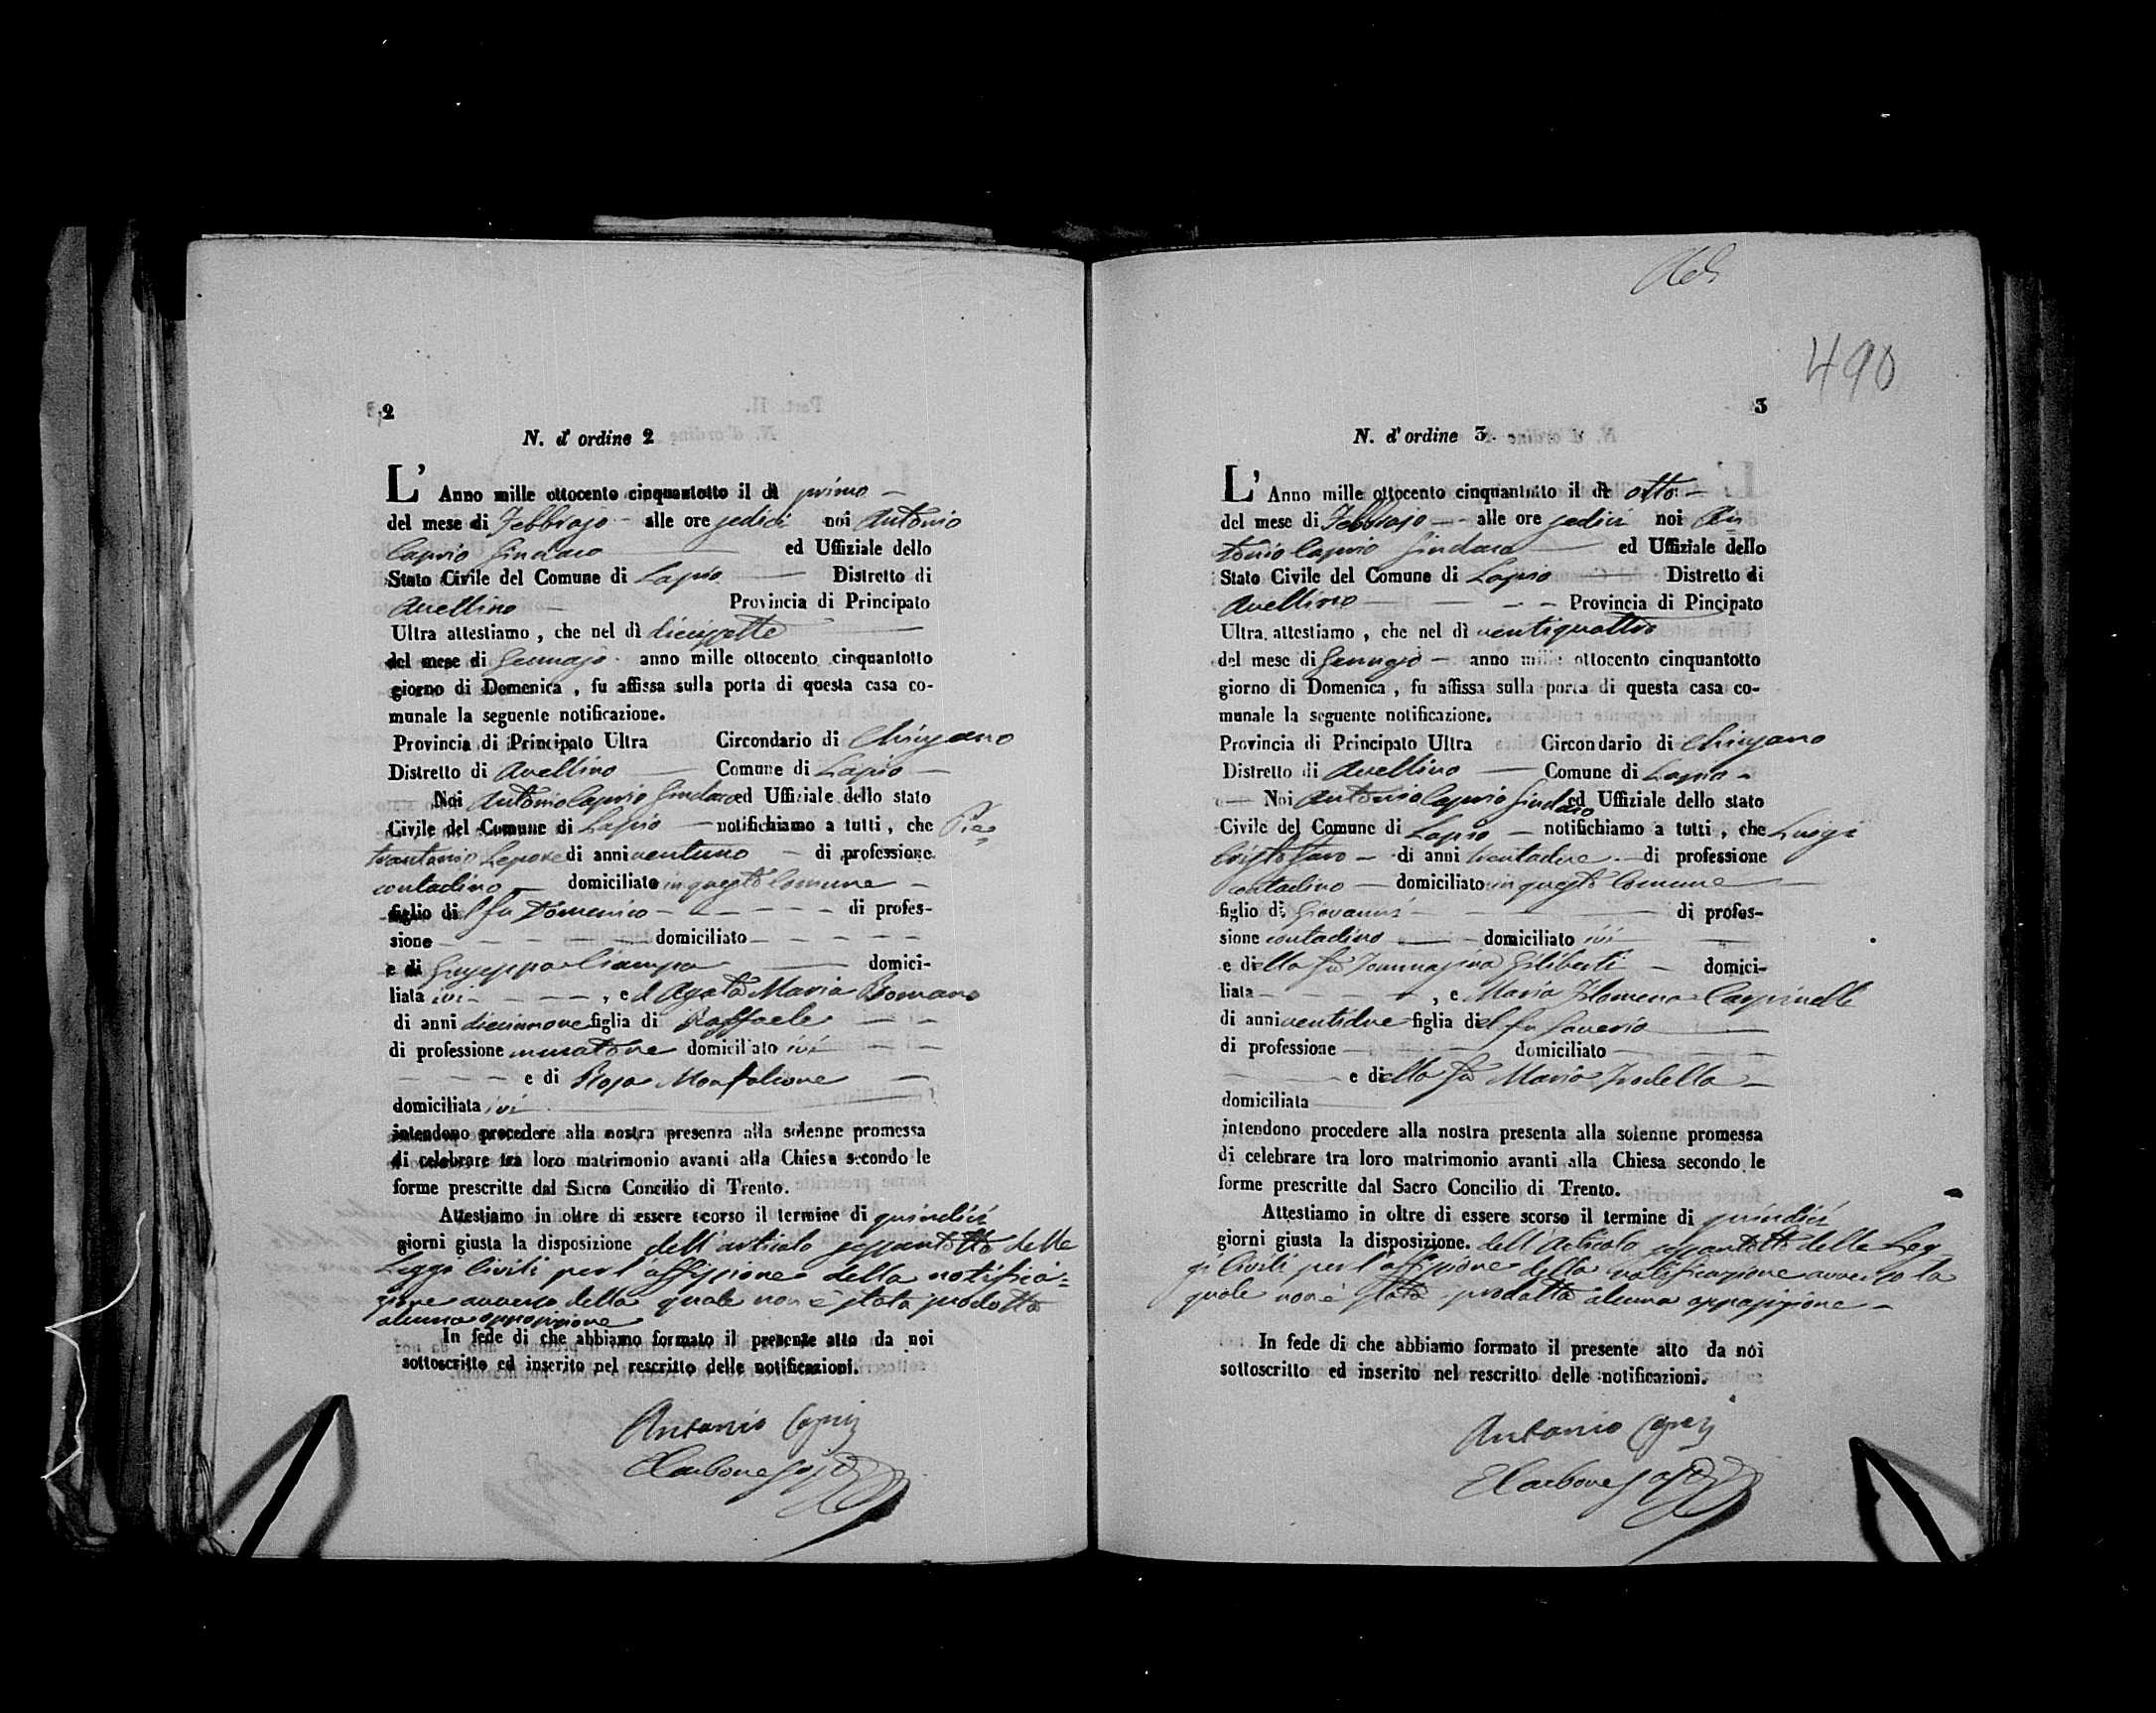 2
N. d' ordine 2
L' Anno mille ottocento cinquantotto il dì primo
del mese di Febbrajo alle ore sedici noi Antonio
Caprio Sindaco ed Uffiziale dello
Stato Civile del Comune di Lapio Distretto di
Avellino Provincia di Principato
Ultra attestiamo , che nel dì diecissette
del mese di Gennajo anno mille ottocento cinquantotto
giorno di Domenica , fu affissa sulla porta di questa casa co-
munale la seguente notificazione.
Provincia di Principato Ultra Circondario di Chiusano
Distretto di Avellino Comune di Lapio
Noi Antonio Caprio Sindaco ed Uffiziale dello stato
Civile del Comune di Lapio notifichiamo a tutti , che Pie=
trantonio Lepore di anni ventuno di professione
contadino domiciliato in questo Comune
figlio del fu Domenico di profes-
sione domiciliato
e di Giuseppa Ciampa domici-
liata ivi , e d Agata Maria Romano
di anni diecinnove figlia di Raffaele
di professione muratore domiciliato ivi
e di Rosa Monfalcone
domiciliata ivi
intendono procedere alla nostra presenza alla solenne promessa
di celebrare tra loro matrimonio avanti alla Chiesa secondo le
forme prescritte dal Sacro Concilio di Trento.
Attestiamo in oltre di essere scorso il termine di quindici
giorni giusta la disposizione dell'articolo sessantotto delle
Leggi Civili per l'affissione della notifica=
zione avverso della quale non è stata prodotta
alcuna opposizione
In fede di che abbiamo formato il presente atto da noi
sottoscritto ed inserito nel rescritto delle notificazioni.
Antonio Caprio
E Carbone
Ads
490
3
N. d' ordine 3.
L' Anno mille ottocento cinquantotto il dì otto
del mese di Febbrajo alle ore sedici noi An=
tonio Caprio Sindaco ed Uffiziale dello
Stato Civile del Comune di Lapio Distretto di
Avellino Provincia di Pincipato
Ultra attestiamo , che nel dì ventiquattro
del mese di Gennajo anno mille ottocento cinquantotto
giorno di Domenica , fu affissa sulla porta di questa casa co-
munale la seguente notificazione.
Provincia di Principato Ultra Circondario di Chiusano
Distretto di Avellino Comune di Lapio
Noi Antonio Caprio Sindaco ed Uffiziale dello stato
Civile del Comune di Lapio notifichiamo a tutti , che Luigi
Cristofaro di anni trentadue di professione
contadino domiciliato in questo Comune
figlio di Giovanni di profes-
sione contadino domiciliato ivi
e della fu Tommasina Giliberti domici-
liata , e Maria Filomena Carpinelli
di anni ventidue figlia del fu Saverio
di professione domiciliato
e della fu Maria Trodella
domiciliata
intendono procedere alla nostra presenta alla solenne promessa
di celebrare tra loro matrimonio avanti alla Chiesa secondo le
forme prescritte dal Sacro Concilio di Trento.
Attestiamo in oltre di essere scorso il termine di quindici
giorni giusta la disposizione. dell'Articolo sessantotto delle Leg
gi Civili per l'affissione della notificazione avverso la
quale non è stata prodotta alcuna opposizione
In fede di che abbiamo formato il presente atto da noi
sottoscritto ed inserito nel rescritto delle notificazioni.
Antonio Caprio
E Carbone